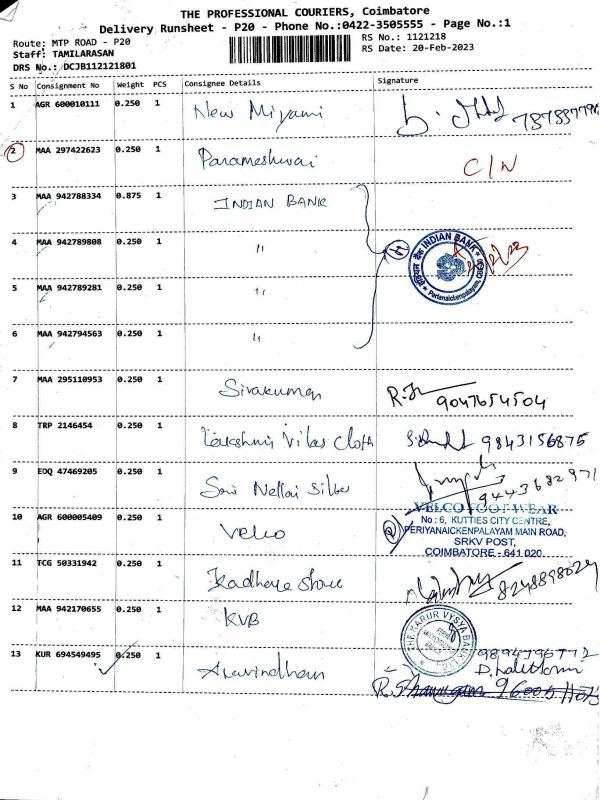 THE PROFESSIONAL COURIERS, Coimbatore
Delivery Runsheet - P20 - Phone No.:0422-3505555 - Page No.:1
Route: MTP ROAD - P20
RS No.: 1121218
Staff: TAMILARASAN
RS Date: 20-Feb-2023
DRS No.: DCJB112121801
S No Consignment No Weight PCS Consignee Details Signature
1 AGR 600010111 0.250 1 New Miyami
2 MAA 297422623 0.250 1 Parameshwari C/N
3 MAA 942788334 0.875 1 INDIAN BANK
4 MAA 942789808 0.250 1 "
INDIAN BANK
5 MAA 942789281 0.250 1 "
6 MAA 942794563 0.250 1 "
7 MAA 295110953 0.250 1 Sivakumar 9047654504
8 TRP 2146454 0.250 1 Lakshmi Vilas Cloth 9843156875
9 EDQ 47469205 0.250 1 Sri Nellai Silks 9443682971
10 AGR 600005409 0.250 1 Velco
VELCO FOOT WEAR
No : 6, KUTTIES CITY CENTRE,
PERIYANAICKENPALAYAM MAIN ROAD,
SRKV POST,
COIMBATORE - 641 020
11 TCG 50331942 0.250 1 8248898029
12 MAA 942170655 0.250 1 KVB
THE KARUR VYSYA BANK LTD
13 KUR 694549495 0.250 1 Aravindhan